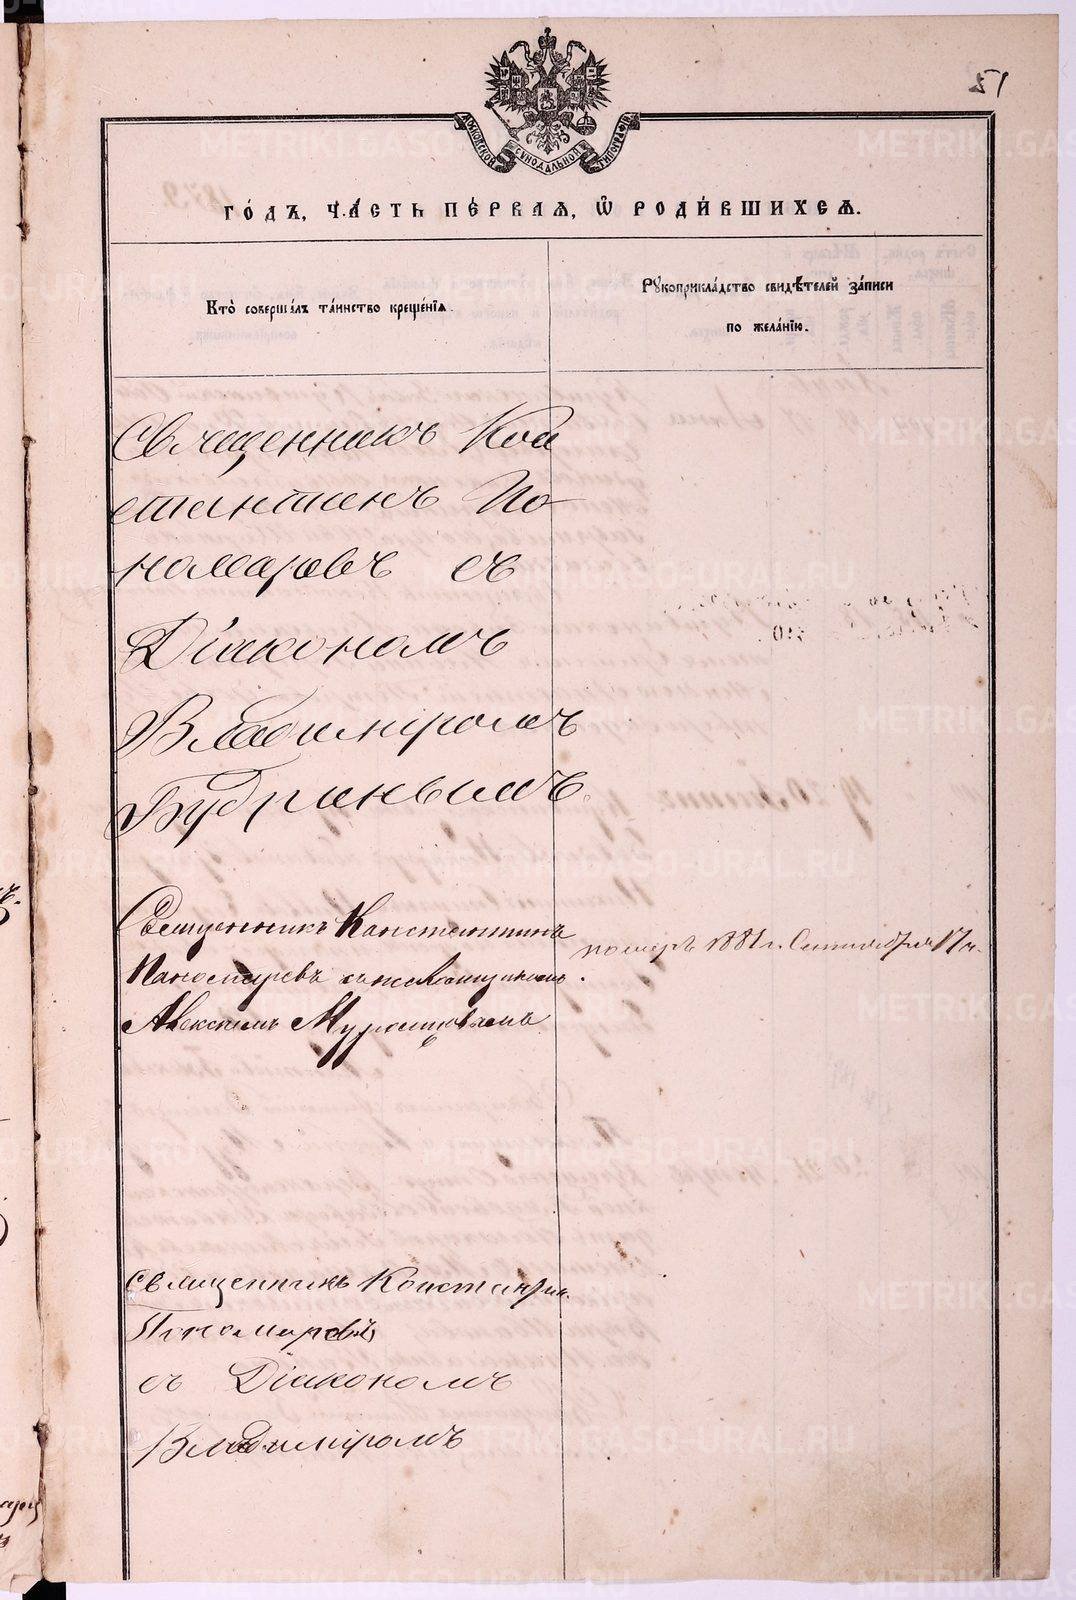 51
МОСКОВСКОЙ СѴНОДАЛЬНОЙ ТИПОГРАФІИ
ГО́ДЪ, ЧА́СТЬ ПЕ́РВАЯ, Ѽ РОДИ́ВШИХСЯ.
Кто̀ соверша́лъ та́инство креще́нїя.
Рꙋкоприкла́дство свидѣ́телей за́писи
по жела́нїю.
Священникъ Кон
стантинъ По
номаревъ съ
Діакономъ
Владиміромъ
Будринымъ
Священникъ Константинъ
Пономаревъ съ псаломщикомъ
Алексеемъ
померъ 1881 г. Сентября 17 ч.
Священникъ Константин.
Пономаревъ
съ Діакономъ
Владиміромъ